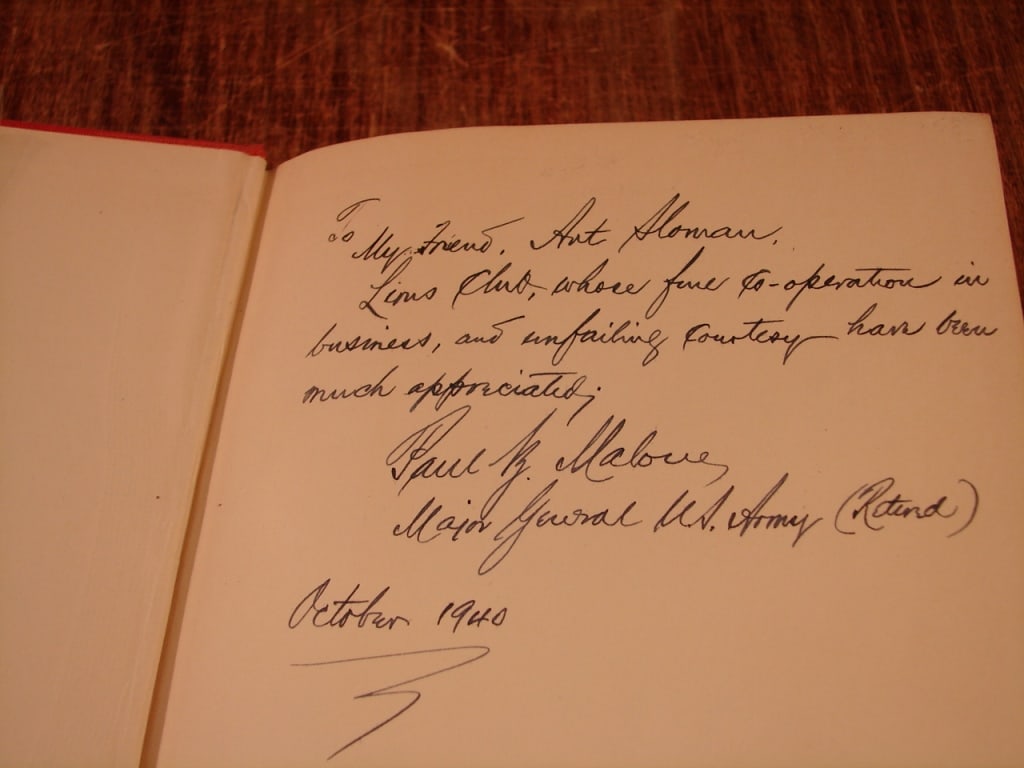 To My Friend, Art Sloman,
Lions Club, whose fine Co-operation in
business, and unfailing Courtesy have been
much appreciated;
Paul B. Malone
Major General U.S. Army (Retired)
October 1940